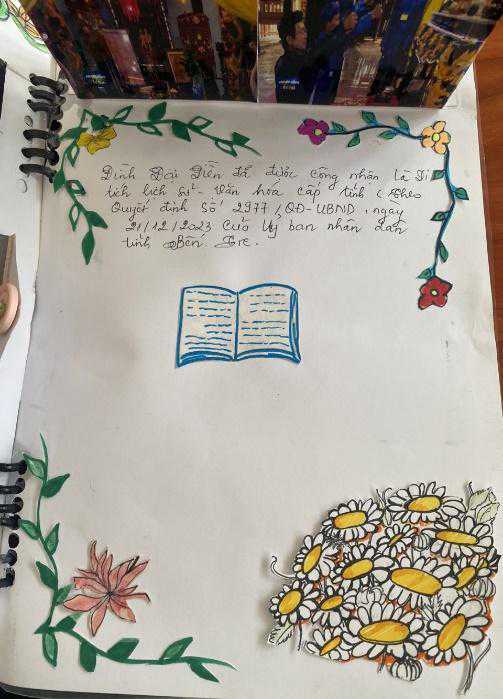 Đình Đại Điền đã được công nhận là Di
tích lịch sử - Văn hoá cấp tỉnh (Theo
Quyết định số 2977/QĐ-UBND, ngày
21/12/2023 của Uỷ ban nhân dân
tỉnh Bến Tre.